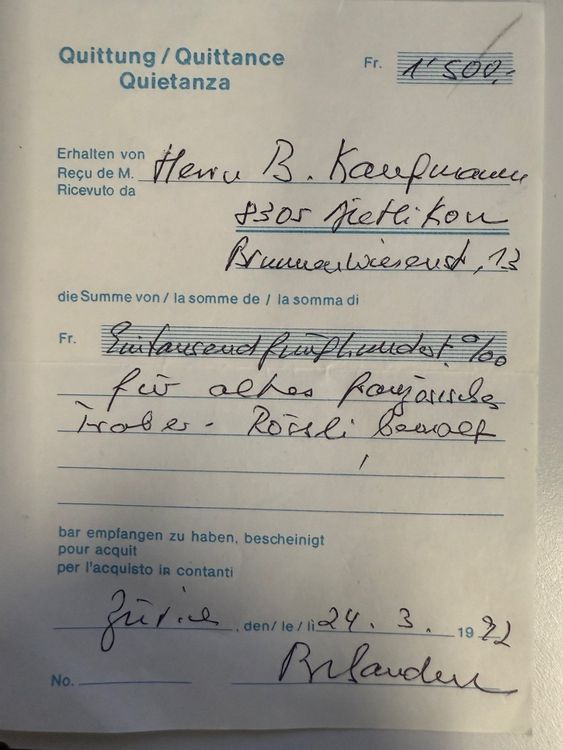 Quittung / Quittance
Quietanza
Fr. 1'500.-
Erhalten von
Reçu de M. Herrn B. Kaufmann
Ricevuto da
8305 Dietlikon
Brunnenwiesenst, 13
die Summe von / la somme de / la somma di
Fr. Eintausendfünfhundert. %00
für altes französisches
Traber- Rössli bemalt
bar empfangen zu haben, bescheinigt
pour acquit
per l'acquisto in contanti
Zürich, den / le / lì 24. 3. 1992
No.